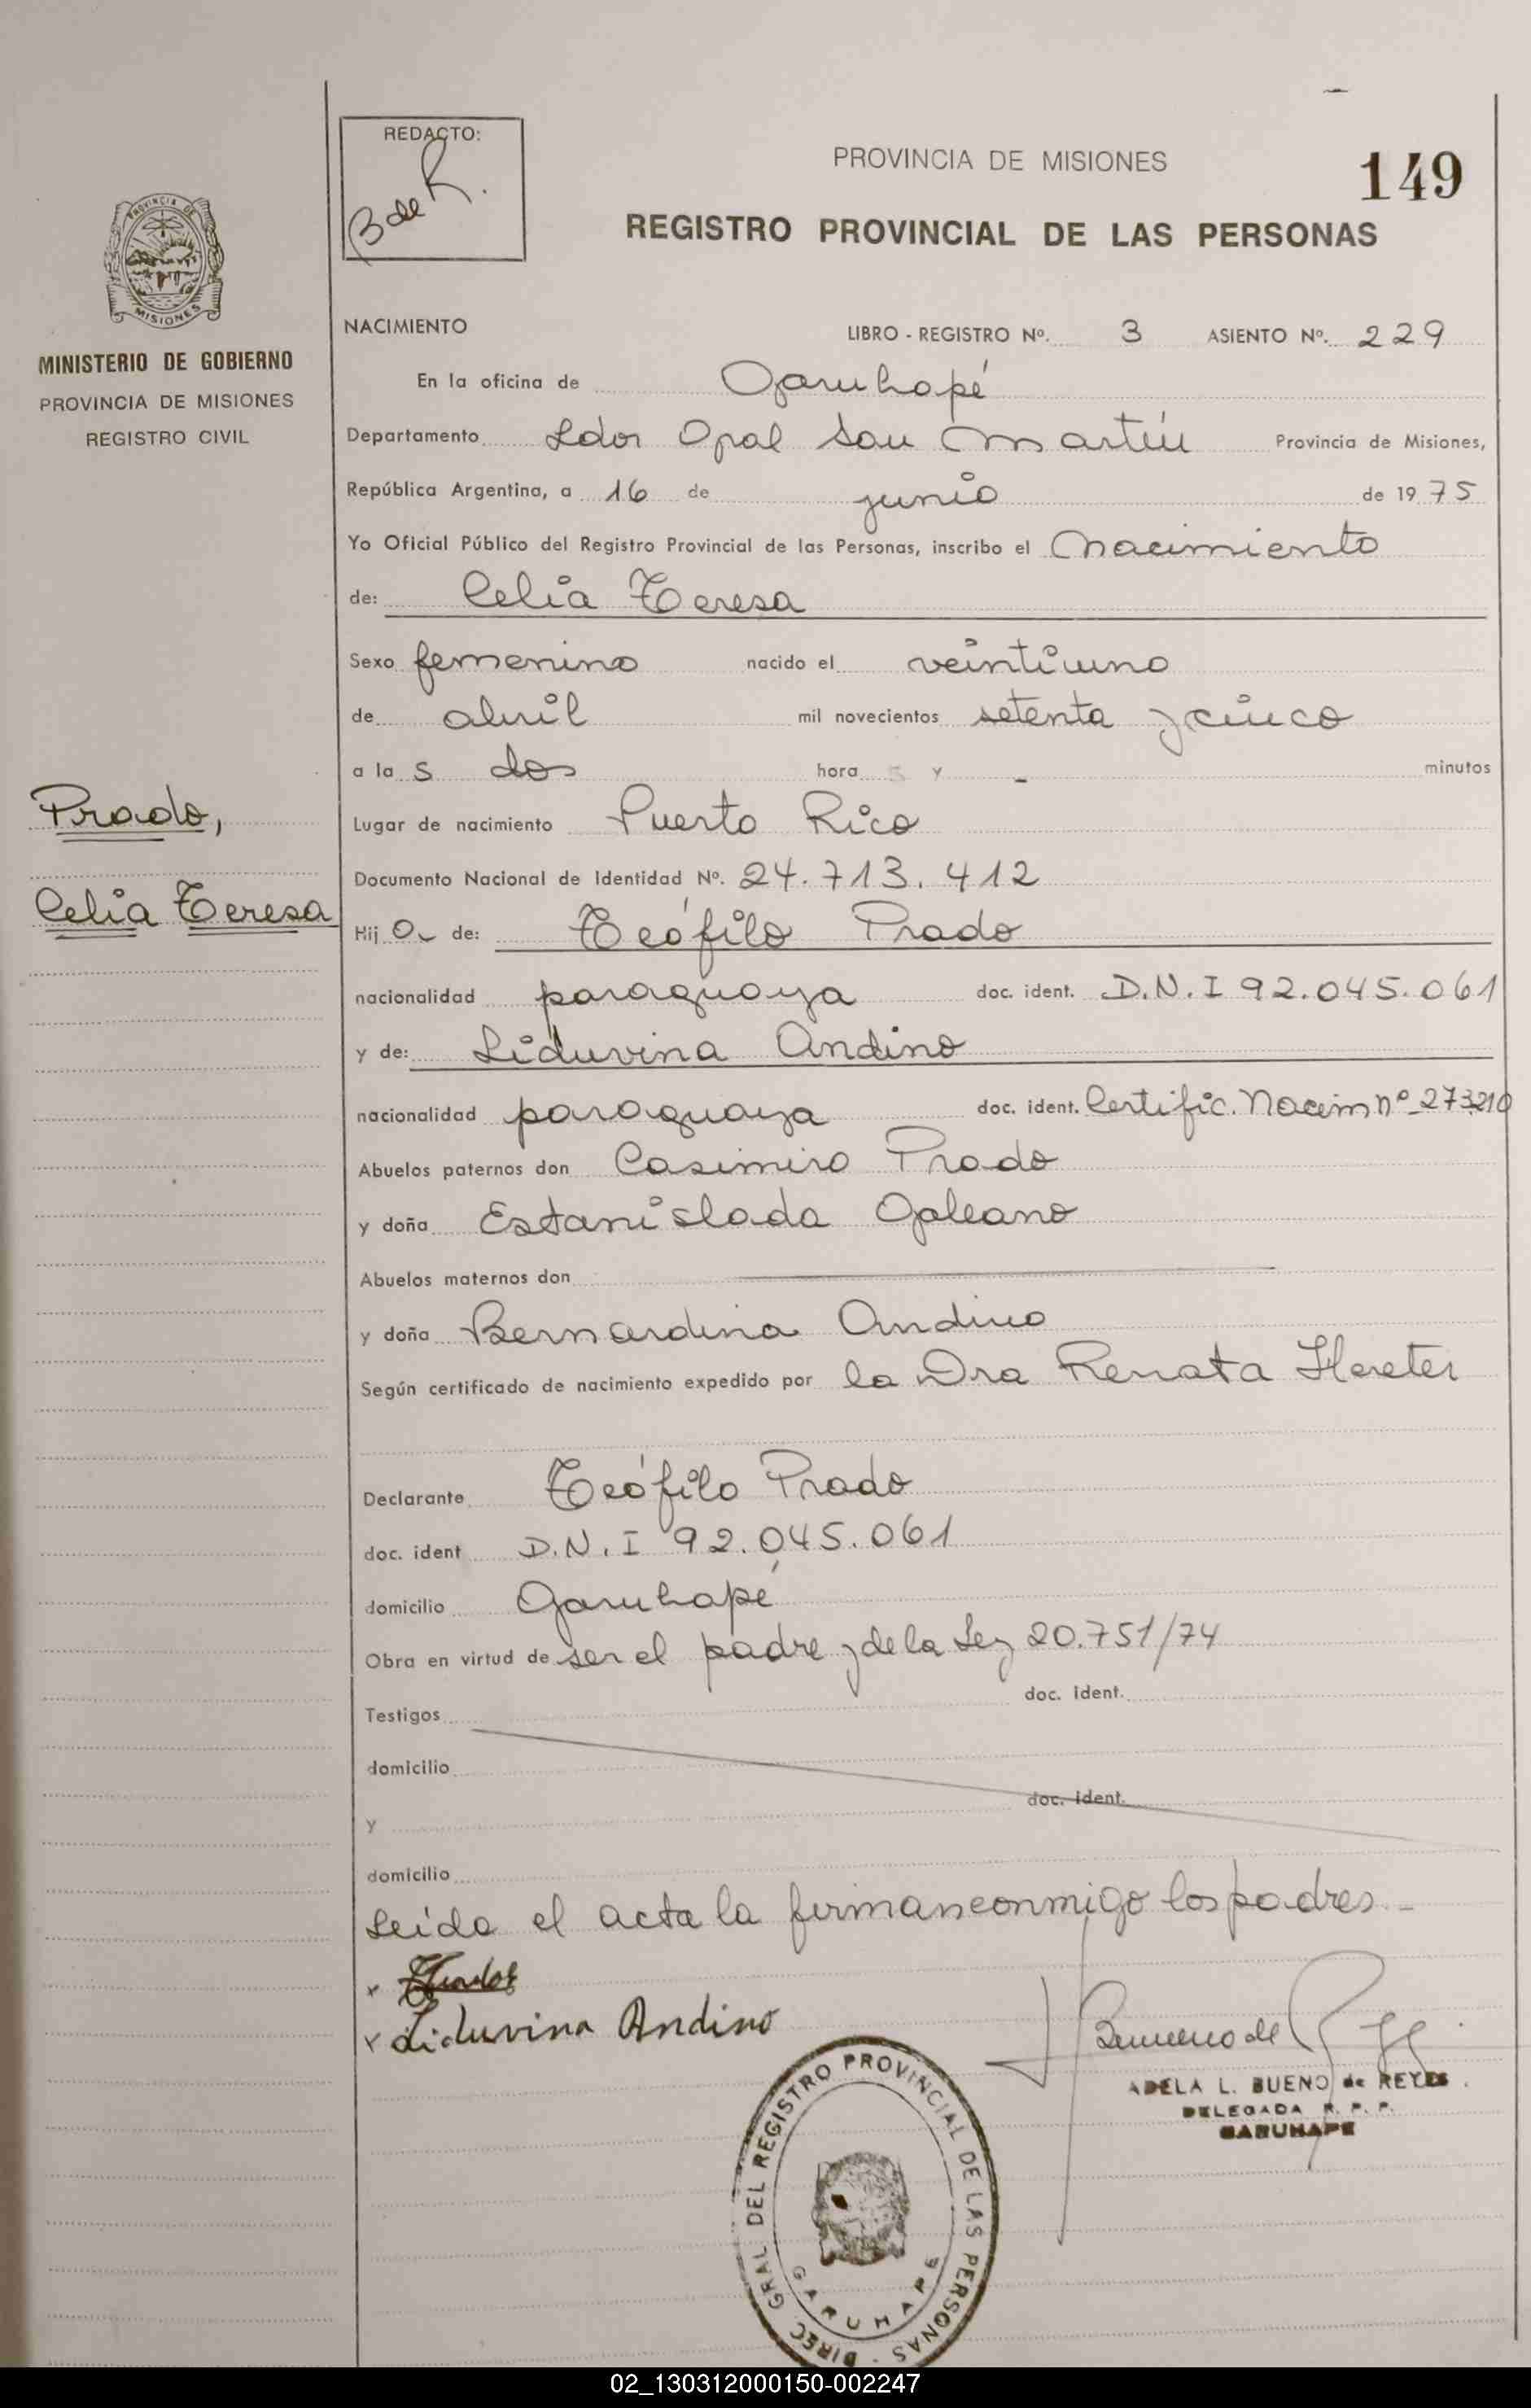 REDACTO:
B de R.
PROVINCIA DE MISIONES
149
REGISTRO PROVINCIAL DE LAS PERSONAS
PROVINCIA DE
MISIONES
MINISTERIO DE GOBIERNO
PROVINCIA DE MISIONES
REGISTRO CIVIL
NACIMIENTO
LIBRO - REGISTRO Nº. 3 ASIENTO Nº. 229
En la oficina de Garuhapé
Departamento Ldor Gral San Martín Provincia de Misiones,
República Argentina, a 16 de junio de 1975
Yo Oficial Público del Registro Provincial de las Personas, inscribo el nacimiento
de: Celia Teresa
Sexo femenino nacido el veintiuno
de abril mil novecientos setenta y cinco
a la s dos hora s y - minutos
Prado,
Celia Teresa
Lugar de nacimiento Puerto Rico
Documento Nacional de Identidad Nº. 24.713.412
Hij a de: Teófilo Prado
nacionalidad paraguaya doc. ident. D.N.I 92.045.061
y de: Liduvina Andino
nacionalidad paraguaya doc. ident. Certific. Nacim nº 273210
Abuelos paternos don Casimiro Prado
y doña Estanislada Galeano
Abuelos maternos don
y doña Bernardina Andino
Según certificado de nacimiento expedido por la Dra Renata
Declarante Teófilo Prado
doc. ident D.N.I 92.045.061
domicilio Garuhapé
Obra en virtud de ser el padre y de la Ley 20.751/74
doc. ident.
Testigos
domicilio
doc. ident.
y
domicilio
Leída el acta la firman conmigo los padres -
x
x Liduvina Andino
Bueno de
ADELA L. BUENO de REYES.
DELEGADA R. P. P.
GARUHAPE
DIREC GRAL DEL REGISTRO PROVINCIAL DE LAS PERSONAS
GARUHAPE
02_130312000150-002247